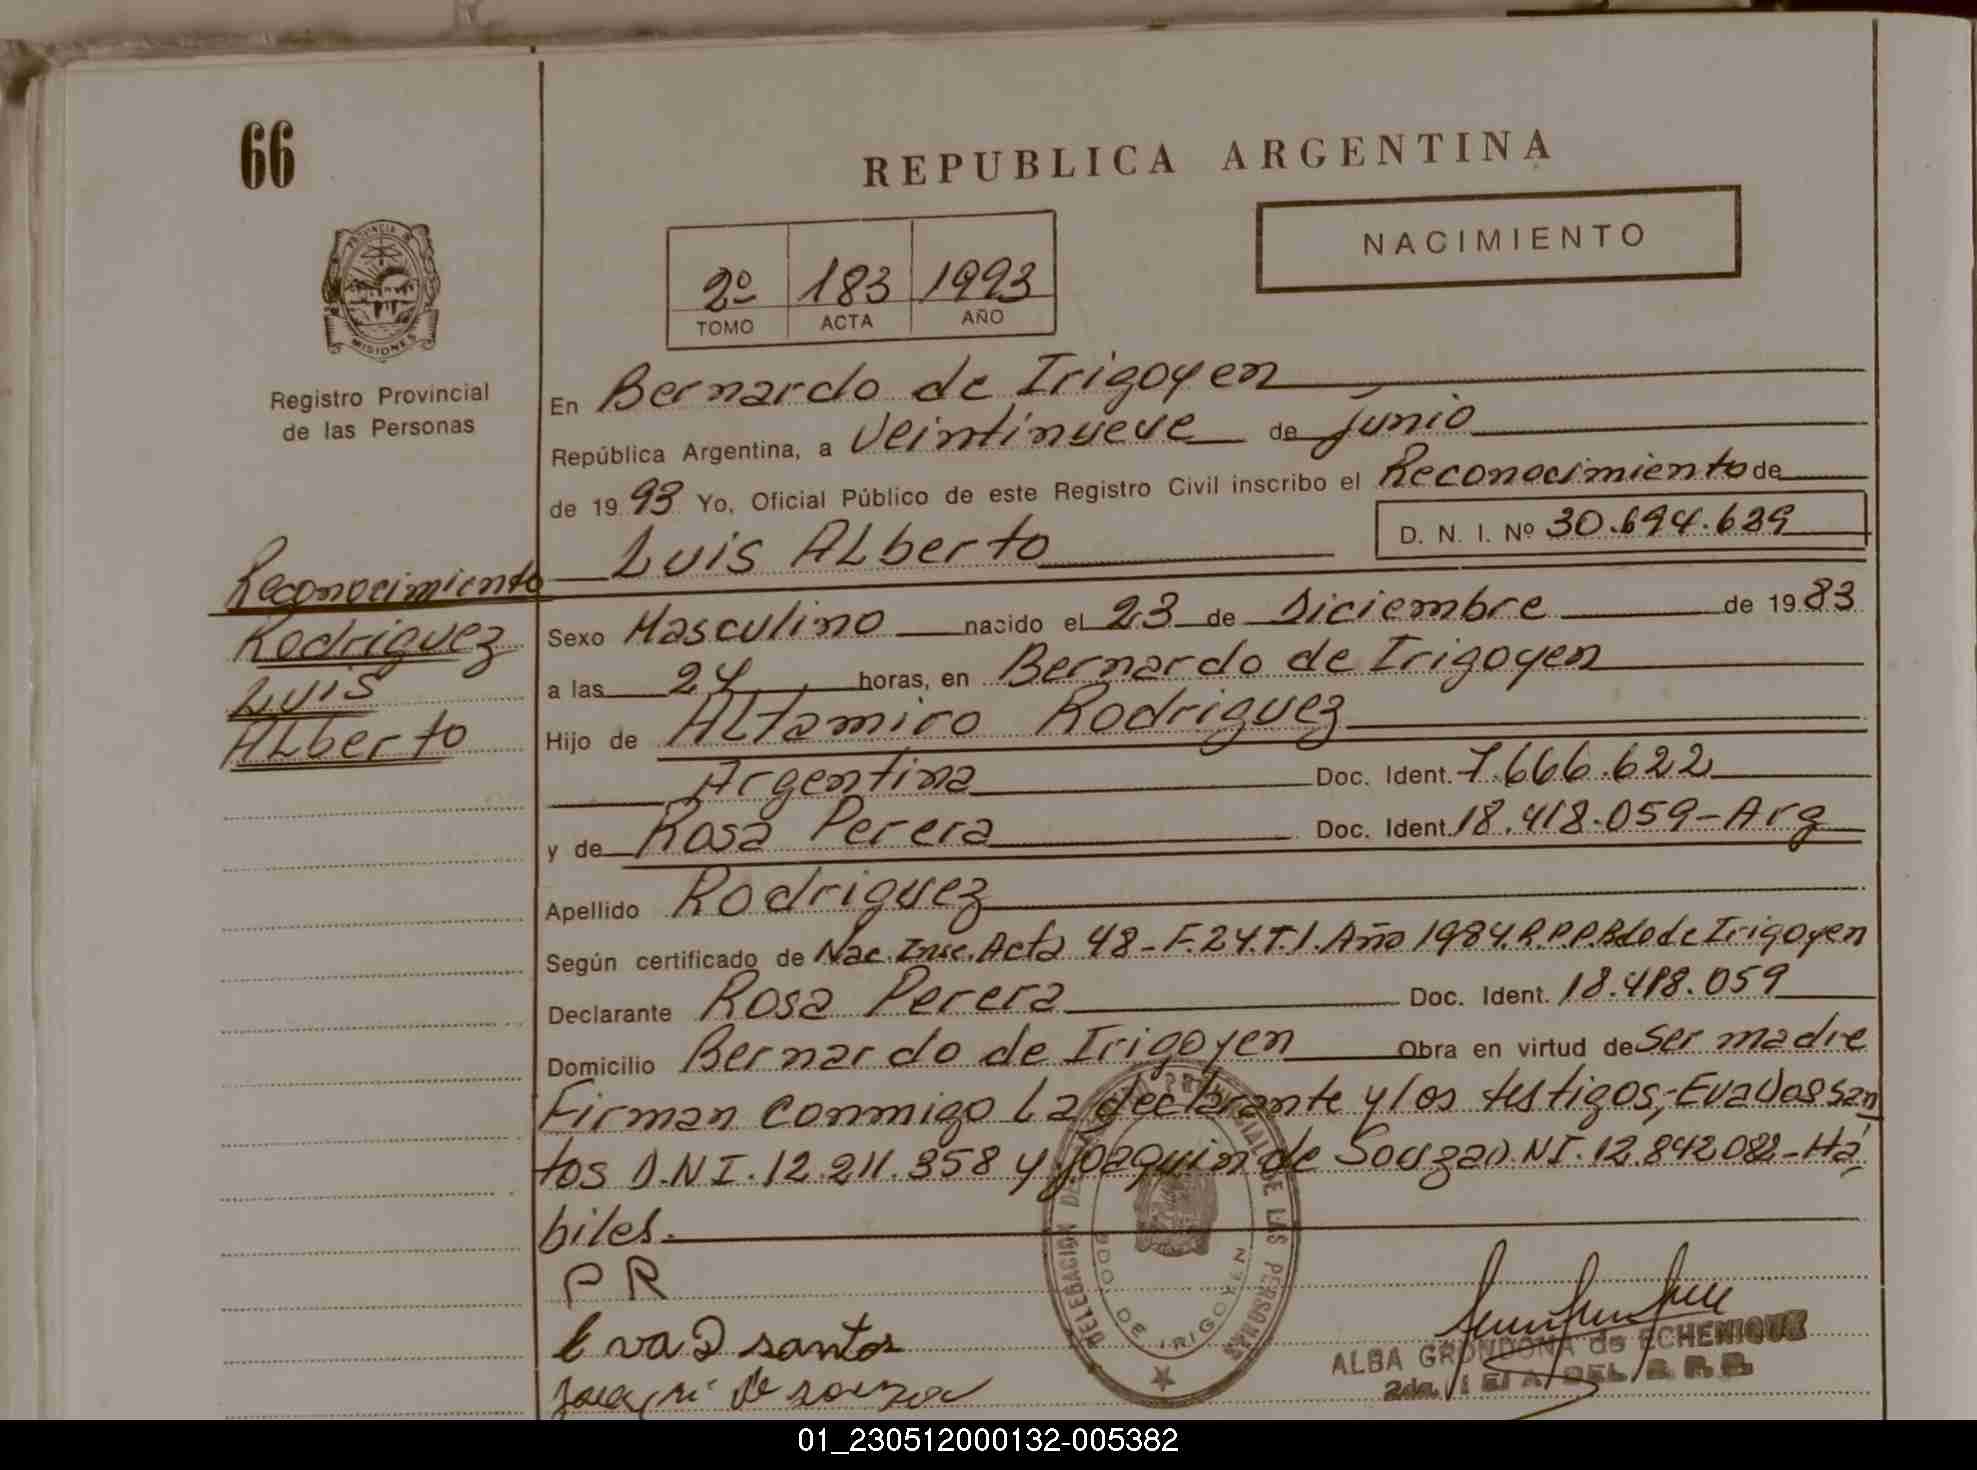 66
REPUBLICA ARGENTINA
NACIMIENTO
2º 183 1993
TOMO ACTA AÑO
PROVINCIA DE
MISIONES
Registro Provincial
de las Personas
En Bernardo de Irigoyen
República Argentina, a Veintinueve de junio
de 1993 Yo, Oficial Público de este Registro Civil inscribo el Reconocimiento de
Luis ALberto D. N. I. Nº 30.694.629
Reconocimiento
Rodriguez
Luis
ALberto
Sexo Masculino nacido el 23 de Diciembre de 1983
a las 24 horas, en Bernardo de Irigoyen
Hijo de ALtamiro Rodriguez
Argentina Doc. Ident. 7.666.622
y de Rosa Perera Doc. Ident. 18.418.059-Arg
Apellido Rodriguez
Según certificado de Nac. Insc. Acta 48-F.24.T.1. Año 1984.R.P.P.Bdo de Irigoyen
Declarante Rosa Perera Doc. Ident. 18.418.059
Domicilio Bernardo de Irigoyen Obra en virtud de ser madre
Firman conmigo La declarante y los testigos;-Eva Dos San
tos D.N.I.12.211.358 y Joaquin de Souza D.N.I.12.842.082-Há
biles.
PR
Eva D santos
de souza
DELEGACION DEL REGISTRO PROVINCIAL DE LAS PERSONAS
BDO. DE IRIGOYEN
ALBA GRONDONA de ECHENIQUE
2da. DEL R. P. P.
01_230512000132-005382